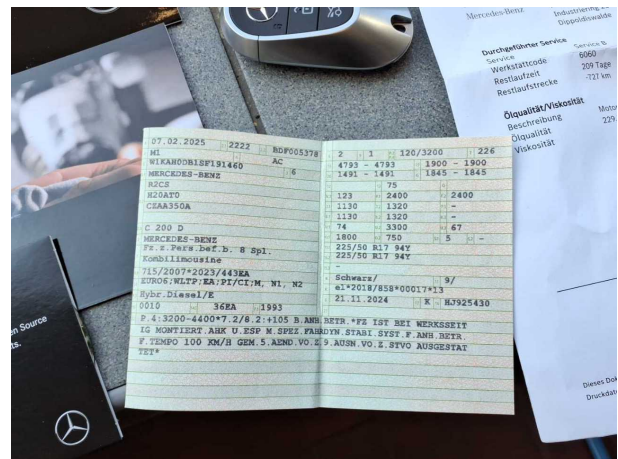 Mercedes-Benz
Industriering
Dippoldiswalde
Durchgeführter Service
Service
Service B
Werkstattcode
6060
Restlaufzeit
209 Tage
Restlaufstrecke
-727 km
Ölqualität/Viskosität
Beschreibung
Moto
Ölqualität
229.
Viskosität
07.02.2025 2222 BDF005378
M1 AC
W1KAH0DB1SF191460 6
MERCEDES-BENZ
R2CS
H20AT0
CZAA350A
C 200 D
MERCEDES-BENZ
Fz.z.Pers.bef.b. 8 Spl.
Kombilimousine
715/2007*2023/443EA
EURO6;WLTP;EA;PI/CI;M, N1, N2
Hybr.Diesel/E
0010 36EA 1993
2 1 120/3200 226
4793 - 4793 1900 - 1900
1491 - 1491 1845 - 1845
75
123 2400 2400
1130 1320 -
1130 1320 -
74 3300 67
1800 750 5 -
225/50 R17 94Y
225/50 R17 94Y
-
Schwarz/ 9/
e1*2018/858*00017*13
21.11.2024 K HJ925430
P.4:3200-4400*7.2/8.2:+105 B.ANH.BETR.*FZ IST BEI WERKSSEIT
IG MONTIERT.AHK U.ESP M.SPEZ.FAHRDYN.STABI.SYST.F.ANH.BETR.
F.TEMPO 100 KM/H GEM.5.AEND.VO.Z.9.AUSN.VO.Z.STVO AUSGESTAT
TET*
en Source
ts.
Dieses Dok
Druckdat